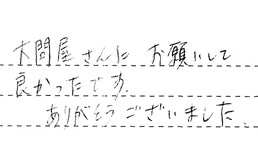 大問屋さんに お願いして
良かったです。
ありがとうございました。